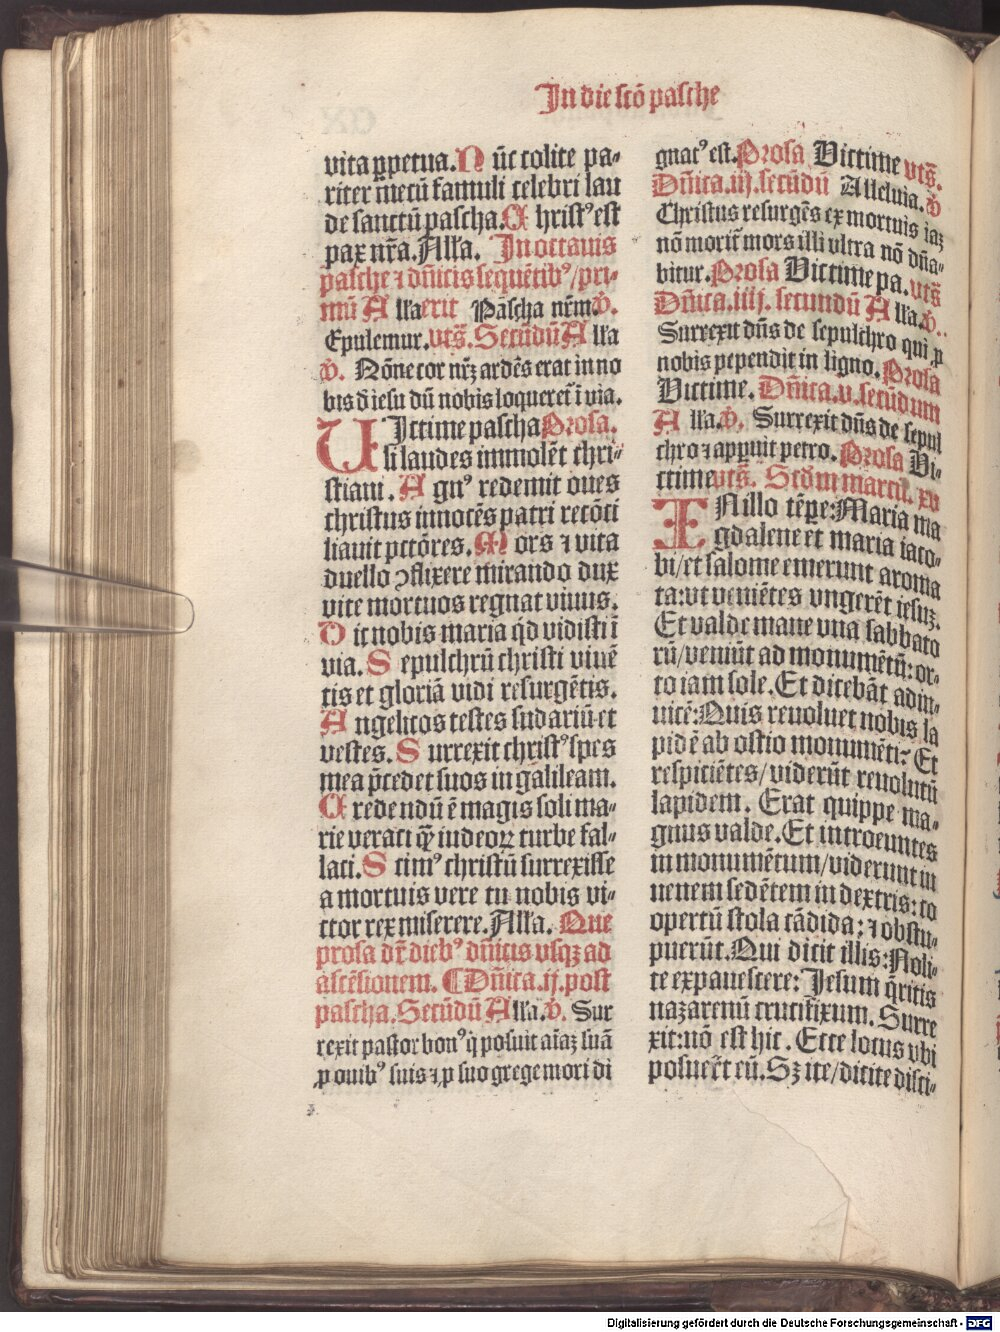 In die scō pasche
vita ꝑpetua. N ūc tolite pa⸗
riter mecū famuli celebri lau
de sanctū pascha. C hristꝰ est
pax nr̄a. All'a. In octauis
pasche ⁊ dn̄icis sequētibꝰ/pri⸗
mū A ll'a exit Pascha nr̄m. V.
Epulemur. vts̄. Secūdū A ll'a
V. Nōne cor nrꝫ ardēs erat in no
bis d̄ iesu dū nobis loqueret̄ ī via.
VIctime pascha Prosa.
li laudes immolēt chri⸗
stiani. A gnꝰ redemit oues
christus innocēs patri recōci
liauit pctōres. M ors ⁊ vita
duello ꝯflixere mirando dux
vite mortuos regnat viuus.
D ic nobis maria qd̄ vidisti ī
via. S epulchrū christi viuē
tis et gloriā vidi resurgētis.
A ngelicos testes sudariū et
vestes. S urrexit christꝰ spes
mea p̄cedet suos in galileam.
C redendū ē magis soli ma⸗
rie veraci qȝ iudeoꝝ turbe fal⸗
laci. S cimꝰ christū surrexisse
a mortuis vere tu nobis vi⸗
ctor rex miserere. All'a. Que
prosa dr̄ diebꝰ dn̄icis vsqꝫ ad
ascēsionem. ¶ Dn̄ica. ij. post
pascha. Secūdū A ll'a. V. Sur
rexit pastor bonꝰ q̇ posuit aīaꝫ suā
ꝓ ouibꝰ suis ⁊ ꝓ suo grege mori di
gnatꝰ est. Prosa Victime vts̄.
Dn̄ica. iij. secūdū Alleluia. V
Christus resurgēs ex mortuis iaꝫ
nō morit̄ mors illi vltra nō dn̄a⸗
bitur. Prosa Victime pa. vts̄
Dn̄ica. iiij. secundū A ll'a. V.
Surrexit dn̄s de sepulchro qui ꝓ
nobis pependit in ligno. Prosa
Victime. Dn̄ica. v. secūdum
A ll'a. V. Surrexit dn̄s de sepul
chro ⁊ apꝑuit petro. Prosa Vi⸗
ctime vts̄. Scd̄m marcū. xvi
IN illo tēꝑe: Maria ma
gdalene et maria iaco⸗
bi/et salome emerunt aroma
ta: vt veniētes vngerēt iesuꝫ.
Et valde mane vna sabbato
rū/veniūt ad monumētū: or⸗
to iam sole. Et dicebāt adin⸗
uicē: Quis reuoluet nobis la
pidē ab ostio monumēti? Et
respiciētes/viderūt reuolutū
lapidem. Erat quippe ma⸗
gnus valde. Et introeuntes
in monumētum/viderunt iu
uenem sedētem in dextris: co
opertū stola cādida: ⁊ obstu⸗
puerūt. Qui dicit illis: Noli⸗
te expauescere: Jesum q̄ritis
nazarenū crucifixum. Surre
xit: nō est hic. Ecce locus vbi
posuerūt eū. Sꝫ ite/dicite disci⸗
Digitalisierung gefördert durch die Deutsche Forschungsgemeinschaft - DFG